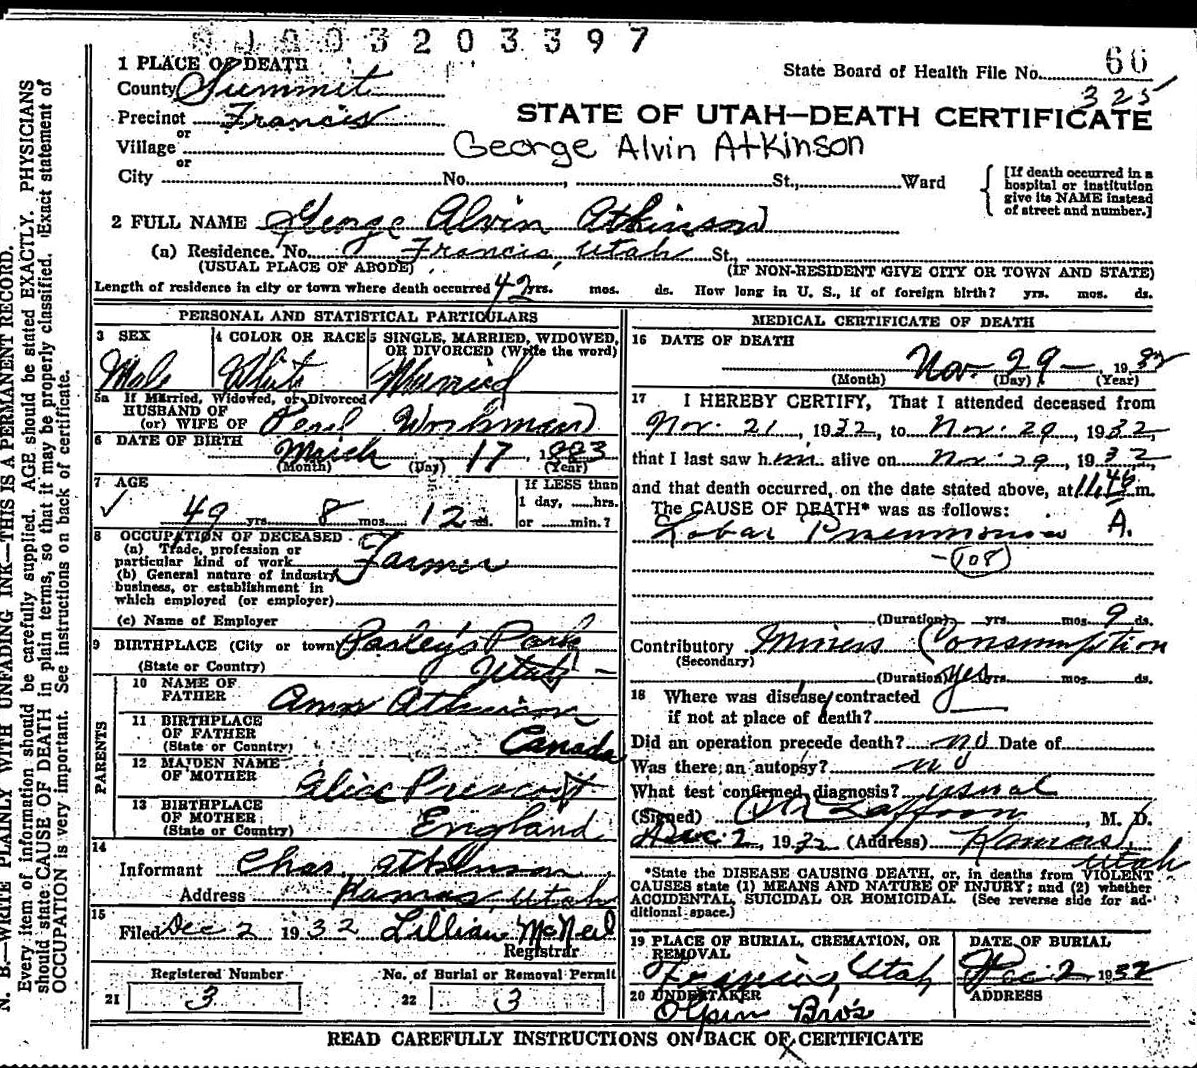 1003203397
1 PLACE OF DEATH
State Board of Health File No. 66
County Summit
325
Precinct Francis
STATE OF UTAH—DEATH CERTIFICATE
or
Village
George Alvin Atkinson
or
City No. , St., Ward
[If death occurred in a
hospital or institution
give its NAME instead
of street and number.]
2 FULL NAME George Alvin Atkinson
(a) Residence. No. Francis, Utah St.,
(USUAL PLACE OF ABODE) (IF NON-RESIDENT GIVE CITY OR TOWN AND STATE)
Length of residence in city or town where death occurred 42 yrs. mos. ds. How long in U. S., if of foreign birth? yrs. mos. ds.
PERSONAL AND STATISTICAL PARTICULARS
3 SEX
Male
4 COLOR OR RACE
White
5 SINGLE, MARRIED, WIDOWED,
OR DIVORCED (Write the word)
Married
5a If Married, Widowed, or Divorced
HUSBAND OF
(or) WIFE OF Pearl Workman
6 DATE OF BIRTH March 17, 1883
(Month) (Day) (Year)
7 AGE
49 yrs. 8 mos. 12 ds.
If LESS than
1 day, hrs.
or min.?
8 OCCUPATION OF DECEASED
(a) Trade, profession or
particular kind of work Farmer
(b) General nature of industry,
business, or establishment in
which employed (or employer)
(c) Name of Employer
9 BIRTHPLACE (City or town) Parley's Park
(State or Country) Utah
PARENTS
10 NAME OF
FATHER Amos Atkinson
11 BIRTHPLACE
OF FATHER
(State or Country) Canada
12 MAIDEN NAME
OF MOTHER Alice Prescott
13 BIRTHPLACE
OF MOTHER
(State or Country) England
14
Informant Chas. Atkinson
Address Kamas, Utah
15
Filed Dec 2 1932 Lillian McNeil
Registrar
Registered Number
21 3
No. of Burial or Removal Permit
22 3
MEDICAL CERTIFICATE OF DEATH
16 DATE OF DEATH
Nov. 29 — 1932
(Month) (Day) (Year)
17 I HEREBY CERTIFY, That I attended deceased from
Nov. 21, 1932, to Nov. 29, 1932,
that I last saw him alive on Nov. 29, 1932,
and that death occurred, on the date stated above, at 11:46 m.
The CAUSE OF DEATH* was as follows: A.
Lobar Pneumonia
—(108)
(Duration) yrs. mos. 9 ds.
Contributory Miners Consumption
(Secondary)
(Duration) yes yrs. mos. ds.
18 Where was disease contracted
if not at place of death?
Did an operation precede death? no Date of
Was there an autopsy? no
What test confirmed diagnosis? usual
(Signed) , M. D.
Dec 2, 1932 (Address) Kamas,
Utah
*State the DISEASE CAUSING DEATH, or, in deaths from VIOLENT
CAUSES state (1) MEANS AND NATURE OF INJURY; and (2) whether
ACCIDENTAL, SUICIDAL OR HOMICIDAL. (See reverse side for ad-
ditional space.)
19 PLACE OF BURIAL, CREMATION, OR
REMOVAL
Francis, Utah
DATE OF BURIAL
Dec 2 1932
20 UNDERTAKER
Olpin Bro's
ADDRESS
READ CAREFULLY INSTRUCTIONS ON BACK OF CERTIFICATE
N. B.—WRITE PLAINLY WITH UNFADING INK—THIS IS A PERMANENT RECORD.
Every item of information should be carefully supplied. AGE should be stated EXACTLY. PHYSICIANS
should state CAUSE OF DEATH in plain terms, so that it may be properly classified. Exact statement of
OCCUPATION is very important. See instructions on back of certificate.